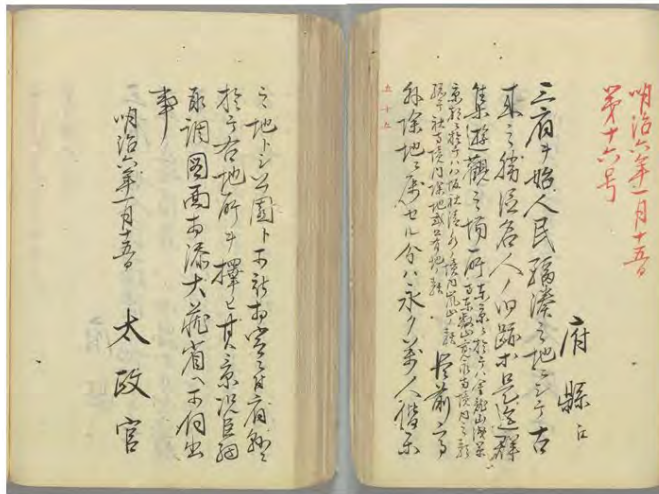 明治六年一月十五日
第十六号
府縣江
三府ヲ始人民輻湊之地ニシテ古
来之勝区名人ノ旧跡等是迄群
集遊観之場所
東京ニ於テハ金龍山浅草
寺東叡山寛永寺境内之類
京都ニ於テハ八坂社清水ノ境内嵐山ノ類
総テ社寺境内除地或ハ公有地ノ類
従前高
外除地ニ属セル分ハ永ク萬人偕楽
之地トシ公園ト可被相定ニ付府縣ニ
於テ右地所ヲ擇ヒ其景況巨細
取調図面相添大蔵省ヘ可伺出
事
明治六年一月十五日
太政官